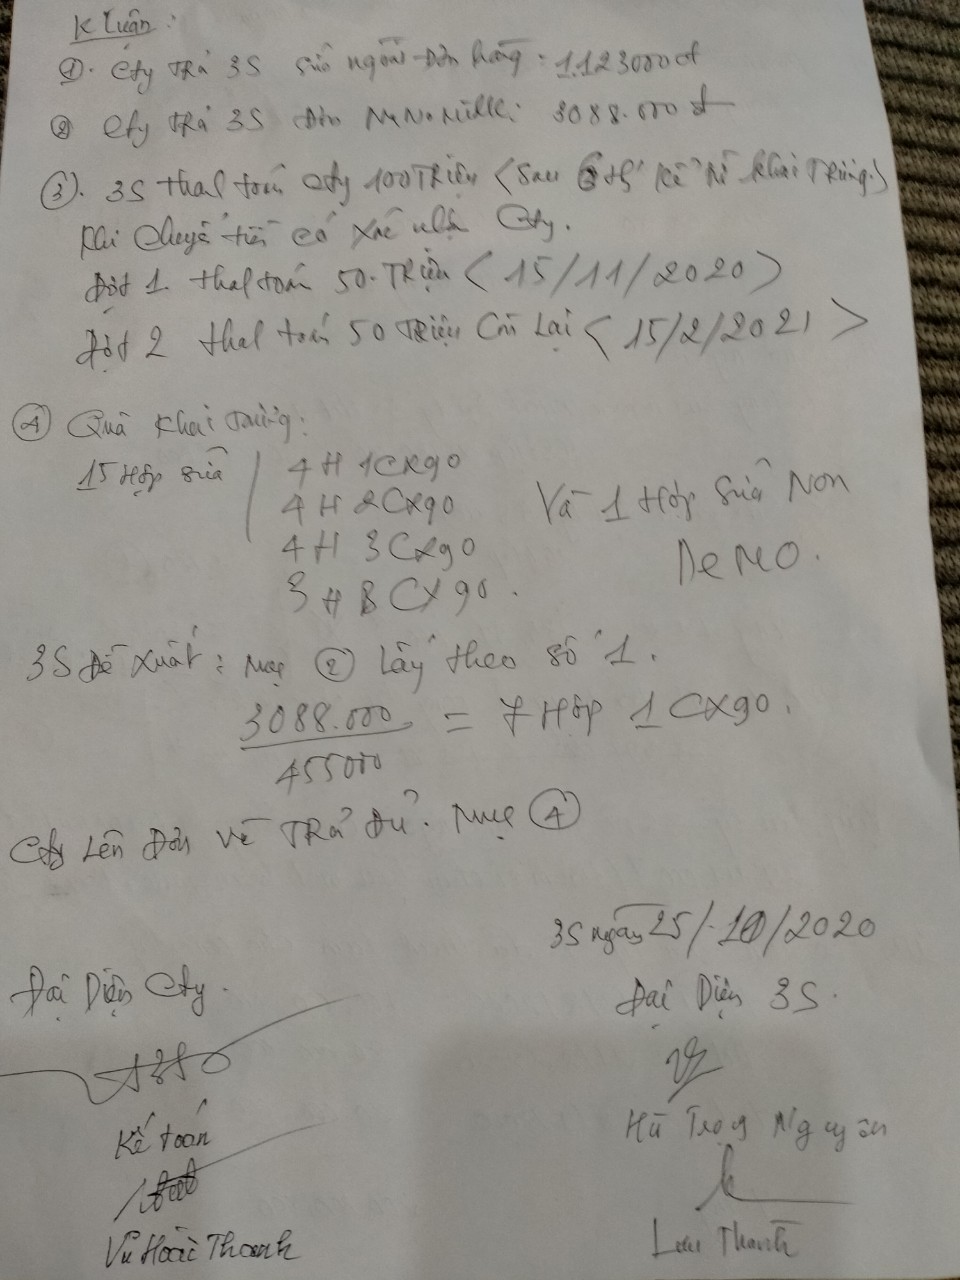 K Luận:
①. Cty trả 3S sữa ngoài đơn hàng: 1.123000đ
② Cty trả 3S đơn : 3088.000đ
③. 3S thal toán Cty 100 Triệu < Sau 6 th' kể từ khai Trương.>
Khi chuyể tiề có xác nhậ Cty.
Đợt 1. thal toán 50. Triệu < 15/11/2020 >
Đợt 2 thal toán 50 Triệu Còn Lại < 15/2/2021 >
④ Quà khai trương:
15 Hộp sữa | 4 H 1CX90
4 H 2CX90
4 H 3CX90
3 H B CX90.
Và 1 Hộp Sữa Non
DeMO.
3S Đề Xuất: Mục ② Lấy theo số 1.
3088.000 = 7 Hộp 1 CX90.
455000
Cty Lên Đơn Về Trả Đủ. Mục ④
3S ngày 25/10/2020
Đại Diện Cty.
Đại Diện 3S.
Kế toán
Hũ Trọng Nguyên
Vũ Hoài Thanh
Lưu Thanh